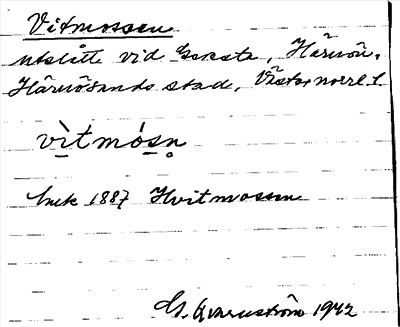 Vitmossen
utslått vid Geresta, Härnön,
Härnösands stad, Västernorrl. l.
vì̱tmósn̥
huk 1887 Hvitmossen
G. Kvarnström 1942